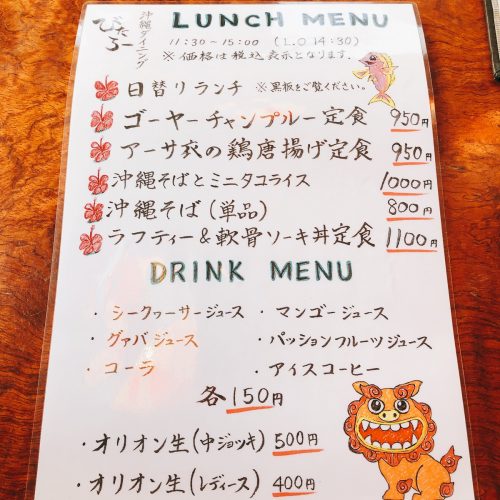 沖縄ダイニング
びたろー
LUNCH MENU
11:30~15:00 (L.O 14:30)
※価格は税込表示となります。
日替りランチ ※黒板をご覧ください。
ゴーヤーチャンプルー定食 950円
アーサ衣の鶏唐揚げ定食 950円
沖縄そばとミニタコライス 1000円
沖縄そば(単品) 800円
ラフティー&軟骨ソーキ丼定食 1100円
DRINK MENU
・シークヮーサージュース ・マンゴージュース
・グァバジュース ・パッションフルーツジュース
・コーラ ・アイスコーヒー
各150円
・オリオン生(中ジョッキ) 500円
・オリオン生(レディース) 400円